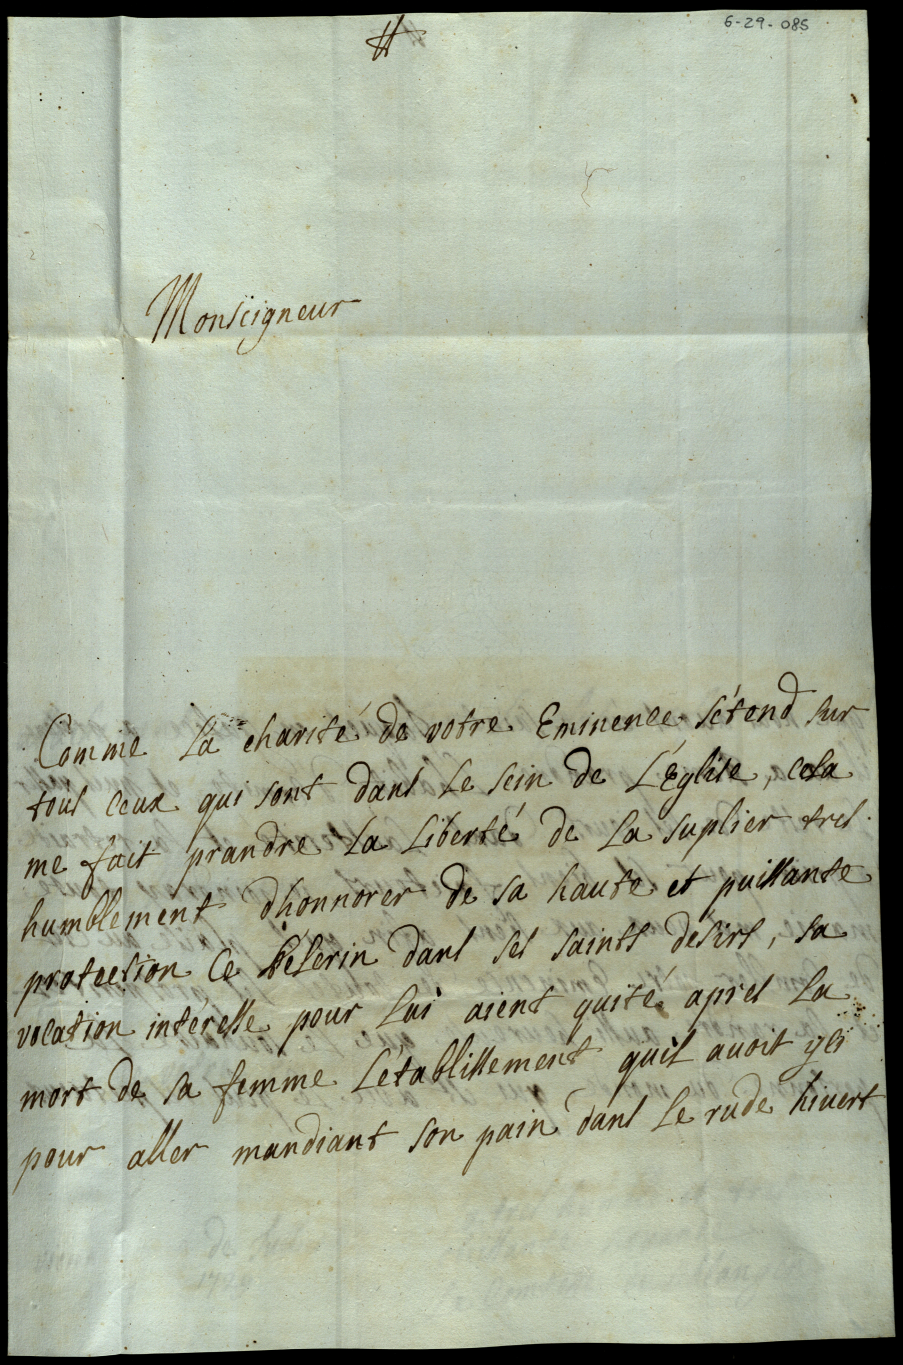 6-29-085
Monseigneur
Comme la charité de votre Eminence s'étend sur
tous ceux qui sont dans le sein de L'Eglise, cela
me fait prandre la Liberté de la suplier tres
humblement d'honnorer de sa haute et puissante
protection ce Pélerin dans ses saints désirs, sa
vocation intéresse pour Lui aient quité apres la
mort de sa femme L'établissement quil avoit yci
pour aller mandiant son pain dans le rude hivert